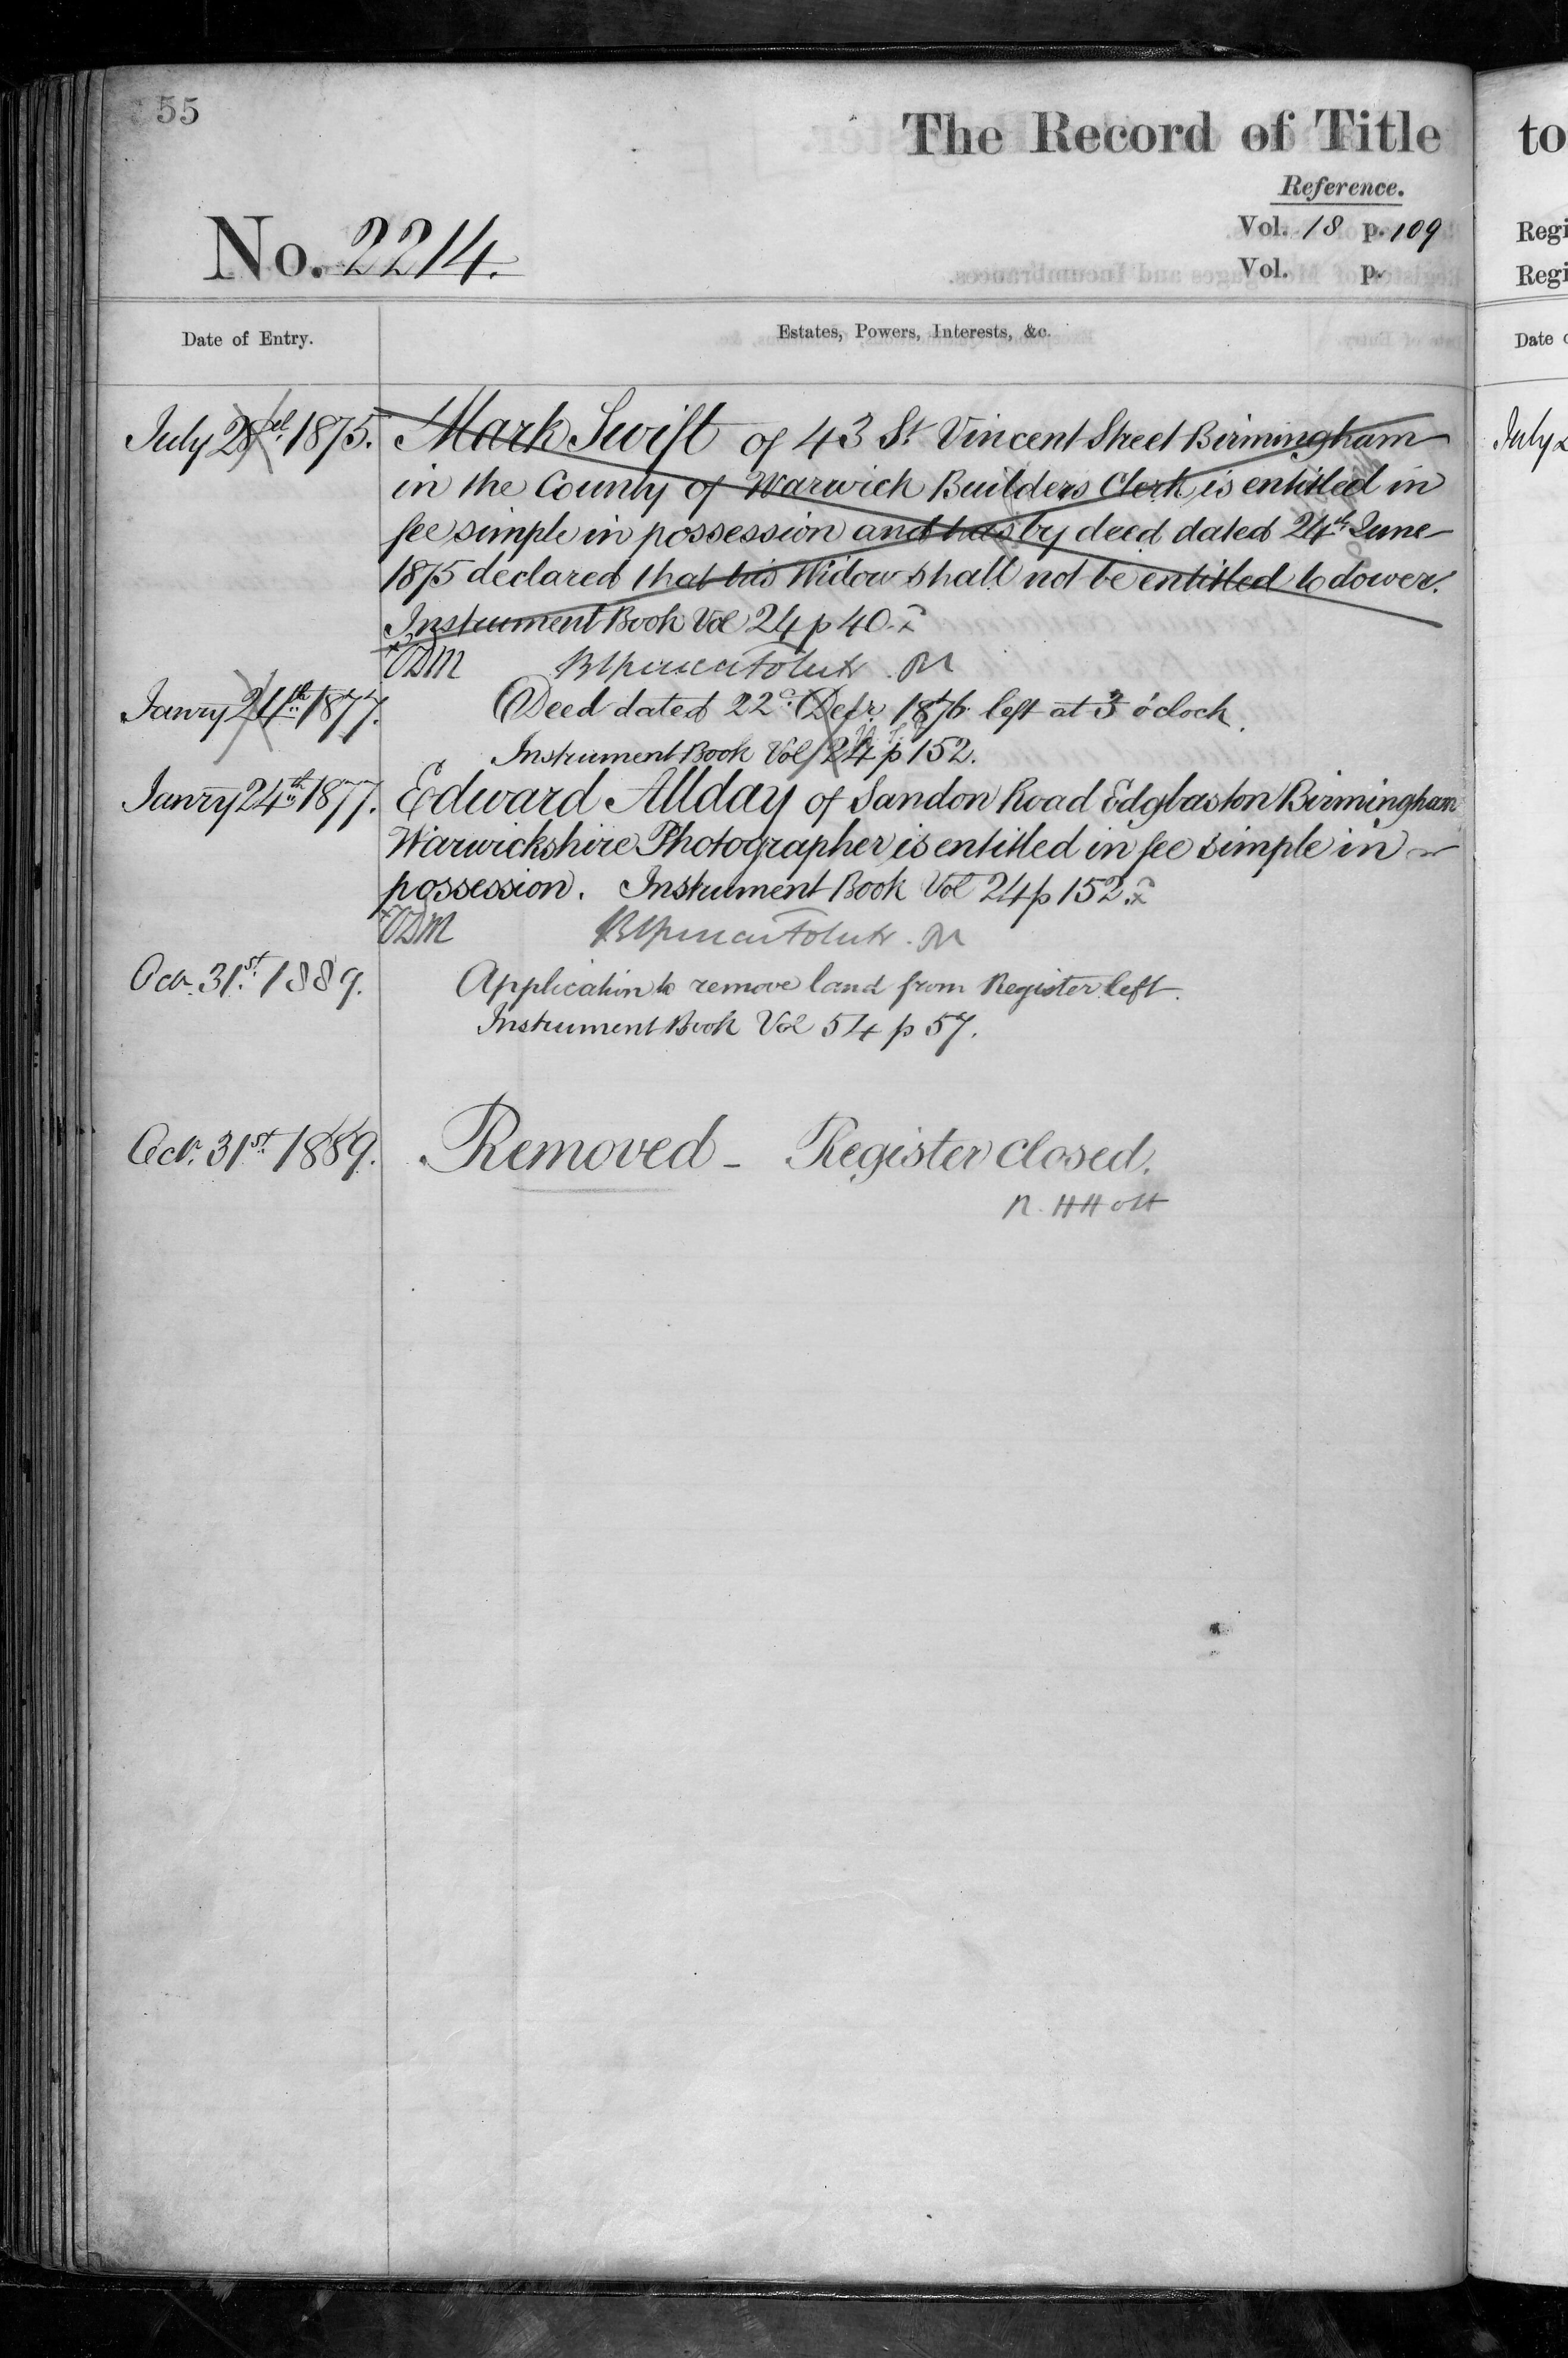 55
The Record of Title
Reference.
No. 2214.
Vol. 18 p. 109
Vol. p.
Date of Entry.
Estates, Powers, Interests, &c.
July 1875. Mark Swift of 43 St Vincent Street Birmingham
in the County of Warwick Builders Clerk is entitled in
fee simple in possession and has by deed dated 24th June
1875 declared that his Widow shall not be entitled to dower.
Instrument Book Vol 24 p 40.
Janry 24th 1877. Deed dated 22d Decr. 1876 left at 3 o'clock.
Instrument Book Vol 24 p 152.
Janry 24th 1877. Edward Allday of Sandon Road Edgbaston Birmingham
Warwickshire Photographer is entitled in fee simple in
possession. Instrument Book Vol 24 p 152.
Octr. 31st. 1889. Application to remove land from Register left.
Instrument Book Vol 54 p 57.
Octr. 31st. 1889. Removed - Register closed.
R. H Holt
to
Regi
Regi
Date
July